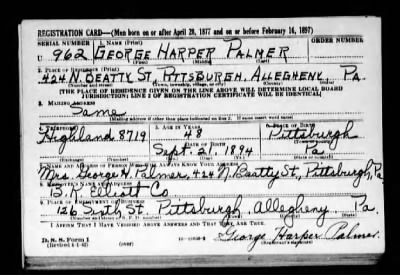 REGISTRATION CARD—(Men born on or after April 28, 1877 and on or before February 16, 1897)
SERIAL NUMBER 1. NAME (Print) ORDER NUMBER
U 962 GEORGE HARPER PALMER
(First) (Middle) (Last)
2. PLACE OF RESIDENCE (Print)
424 N. BEATTY ST., PITTSBURGH, ALLEGHENY, PA.
(Number and street) (Town, township, village, or city) (County) (State)
[THE PLACE OF RESIDENCE GIVEN ON THE LINE ABOVE WILL DETERMINE LOCAL BOARD
JURISDICTION; LINE 2 OF REGISTRATION CERTIFICATE WILL BE IDENTICAL]
3. MAILING ADDRESS
Same
[Mailing address if other than place indicated on line 2. If same insert word same]
4. TELEPHONE 5. AGE IN YEARS 6. PLACE OF BIRTH
Highland 8719 48 Pittsburgh
DATE OF BIRTH
Sept. 21, 1894 Pa
7. NAME AND ADDRESS OF PERSON WHO WILL ALWAYS KNOW YOUR ADDRESS
Mrs. George H. Palmer, 424 N. Beatty St., Pittsburgh, Pa
8. EMPLOYER'S NAME AND ADDRESS
B. K. Elliott Co
9. PLACE OF EMPLOYMENT OR BUSINESS
126 Sixth St. Pittsburgh Allegheny Pa.
(Number and street or R. F. D. number) (Town) (County) (State)
I AFFIRM THAT I HAVE VERIFIED ABOVE ANSWERS AND THAT THEY ARE TRUE.
D. S. S. Form 1
(Revised 4-1-42) (over)
George Harper Palmer
(Registrant's signature)